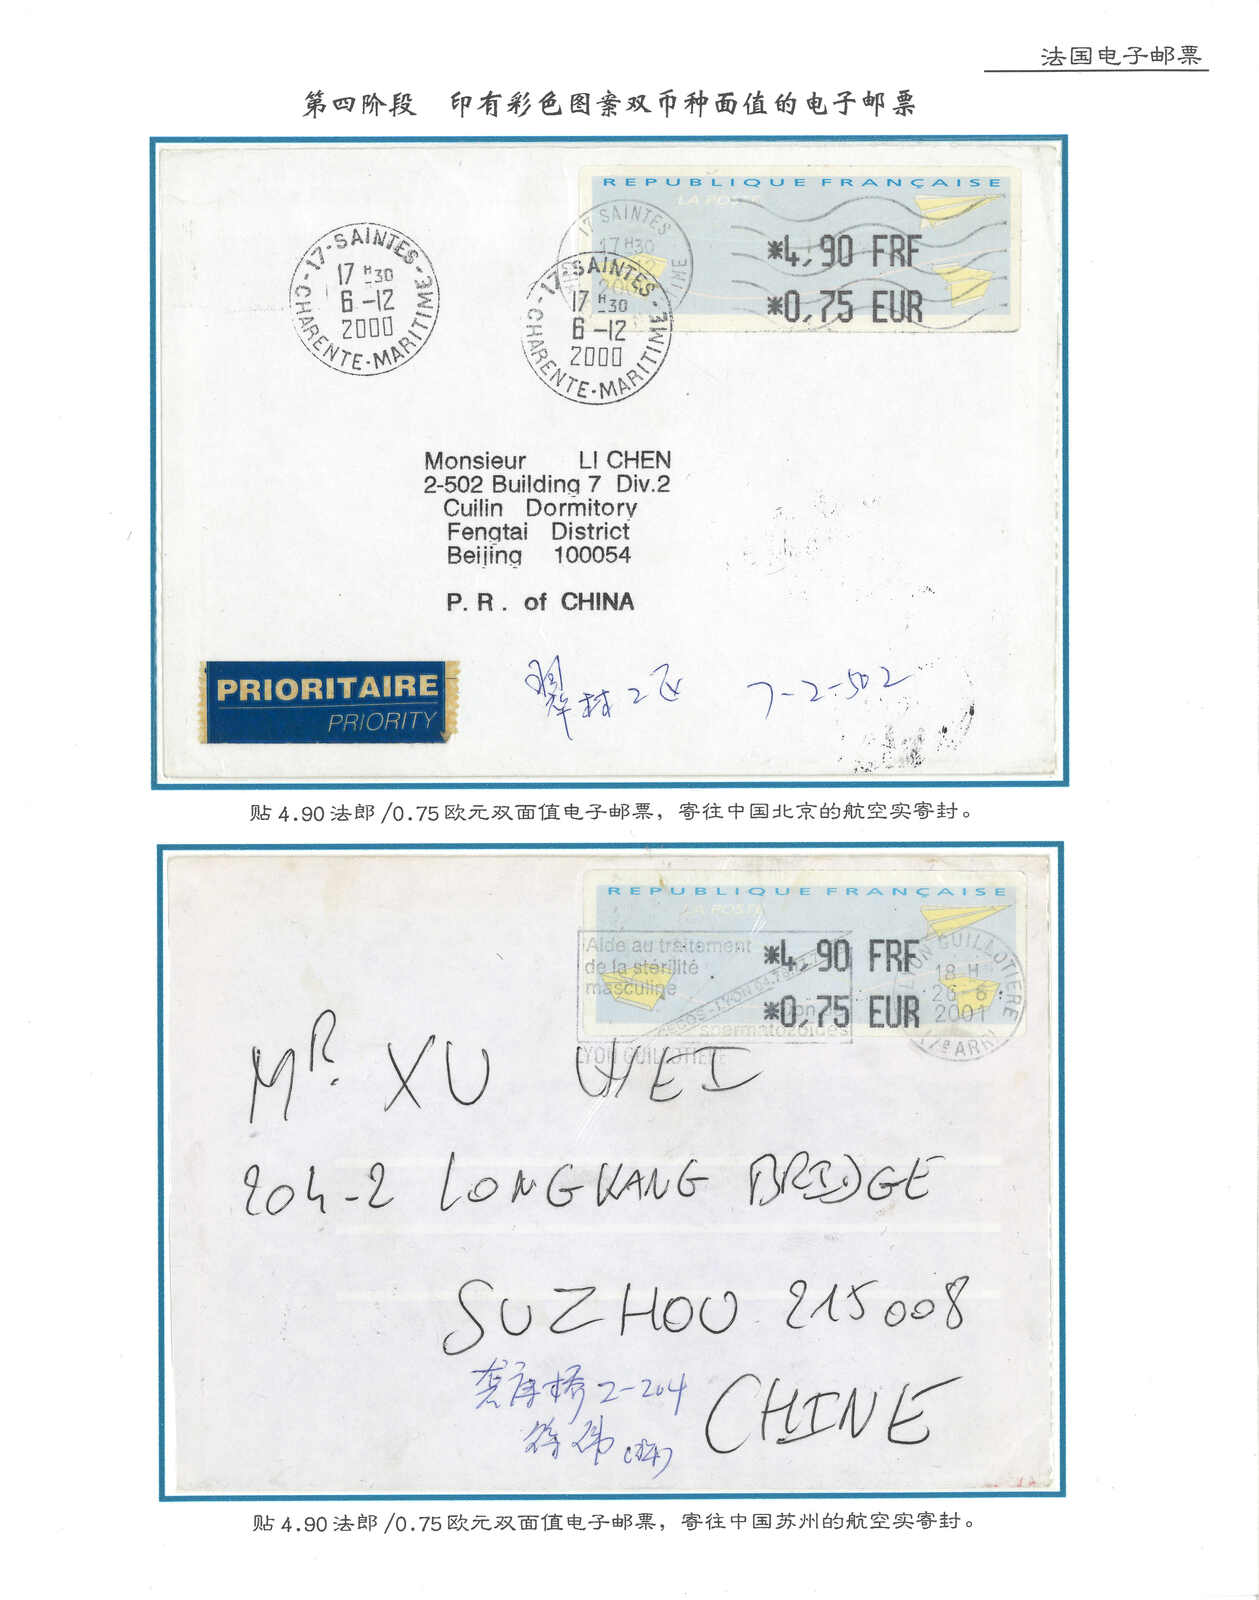 法国电子邮票
第四阶段 印有彩色图案双币种面值的电子邮票
REPUBLIQUE FRANÇAISE
LA POSTE
*4,90 FRF
*0,75 EUR
17 SAINTES
17 H30
17-SAINTES-
17 H30
6-12
2000
CHARENTE-MARITIME
17-SAINTES-
17 H30
6-12
2000
CHARENTE-MARITIME
Monsieur LI CHEN
2-502 Building 7 Div.2
Cuilin Dormitory
Fengtai District
Beijing 100054
P. R. of CHINA
PRIORITAIRE
PRIORITY
翠林2区 7-2-502
贴4.90法郎/0.75欧元双面值电子邮票，寄往中国北京的航空实寄封。
REPUBLIQUE FRANÇAISE
LA POSTE
*4,90 FRF
*0,75 EUR
Aide au traitement
de la stérilité
masculine
CECOS-LYON
spermatozoïdes
LYON GUILLOTIERE
LYON GUILLOTIERE
18 H
26-6
2001
MR. XU WEI
204-2 LONGKANG BRIDGE
SUZHOU 215008
CHINE
2-204
徐伟
贴4.90法郎/0.75欧元双面值电子邮票，寄往中国苏州的航空实寄封。